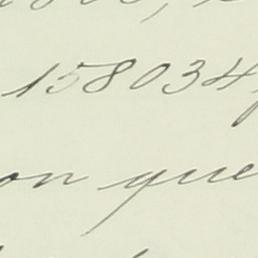 158034
on que